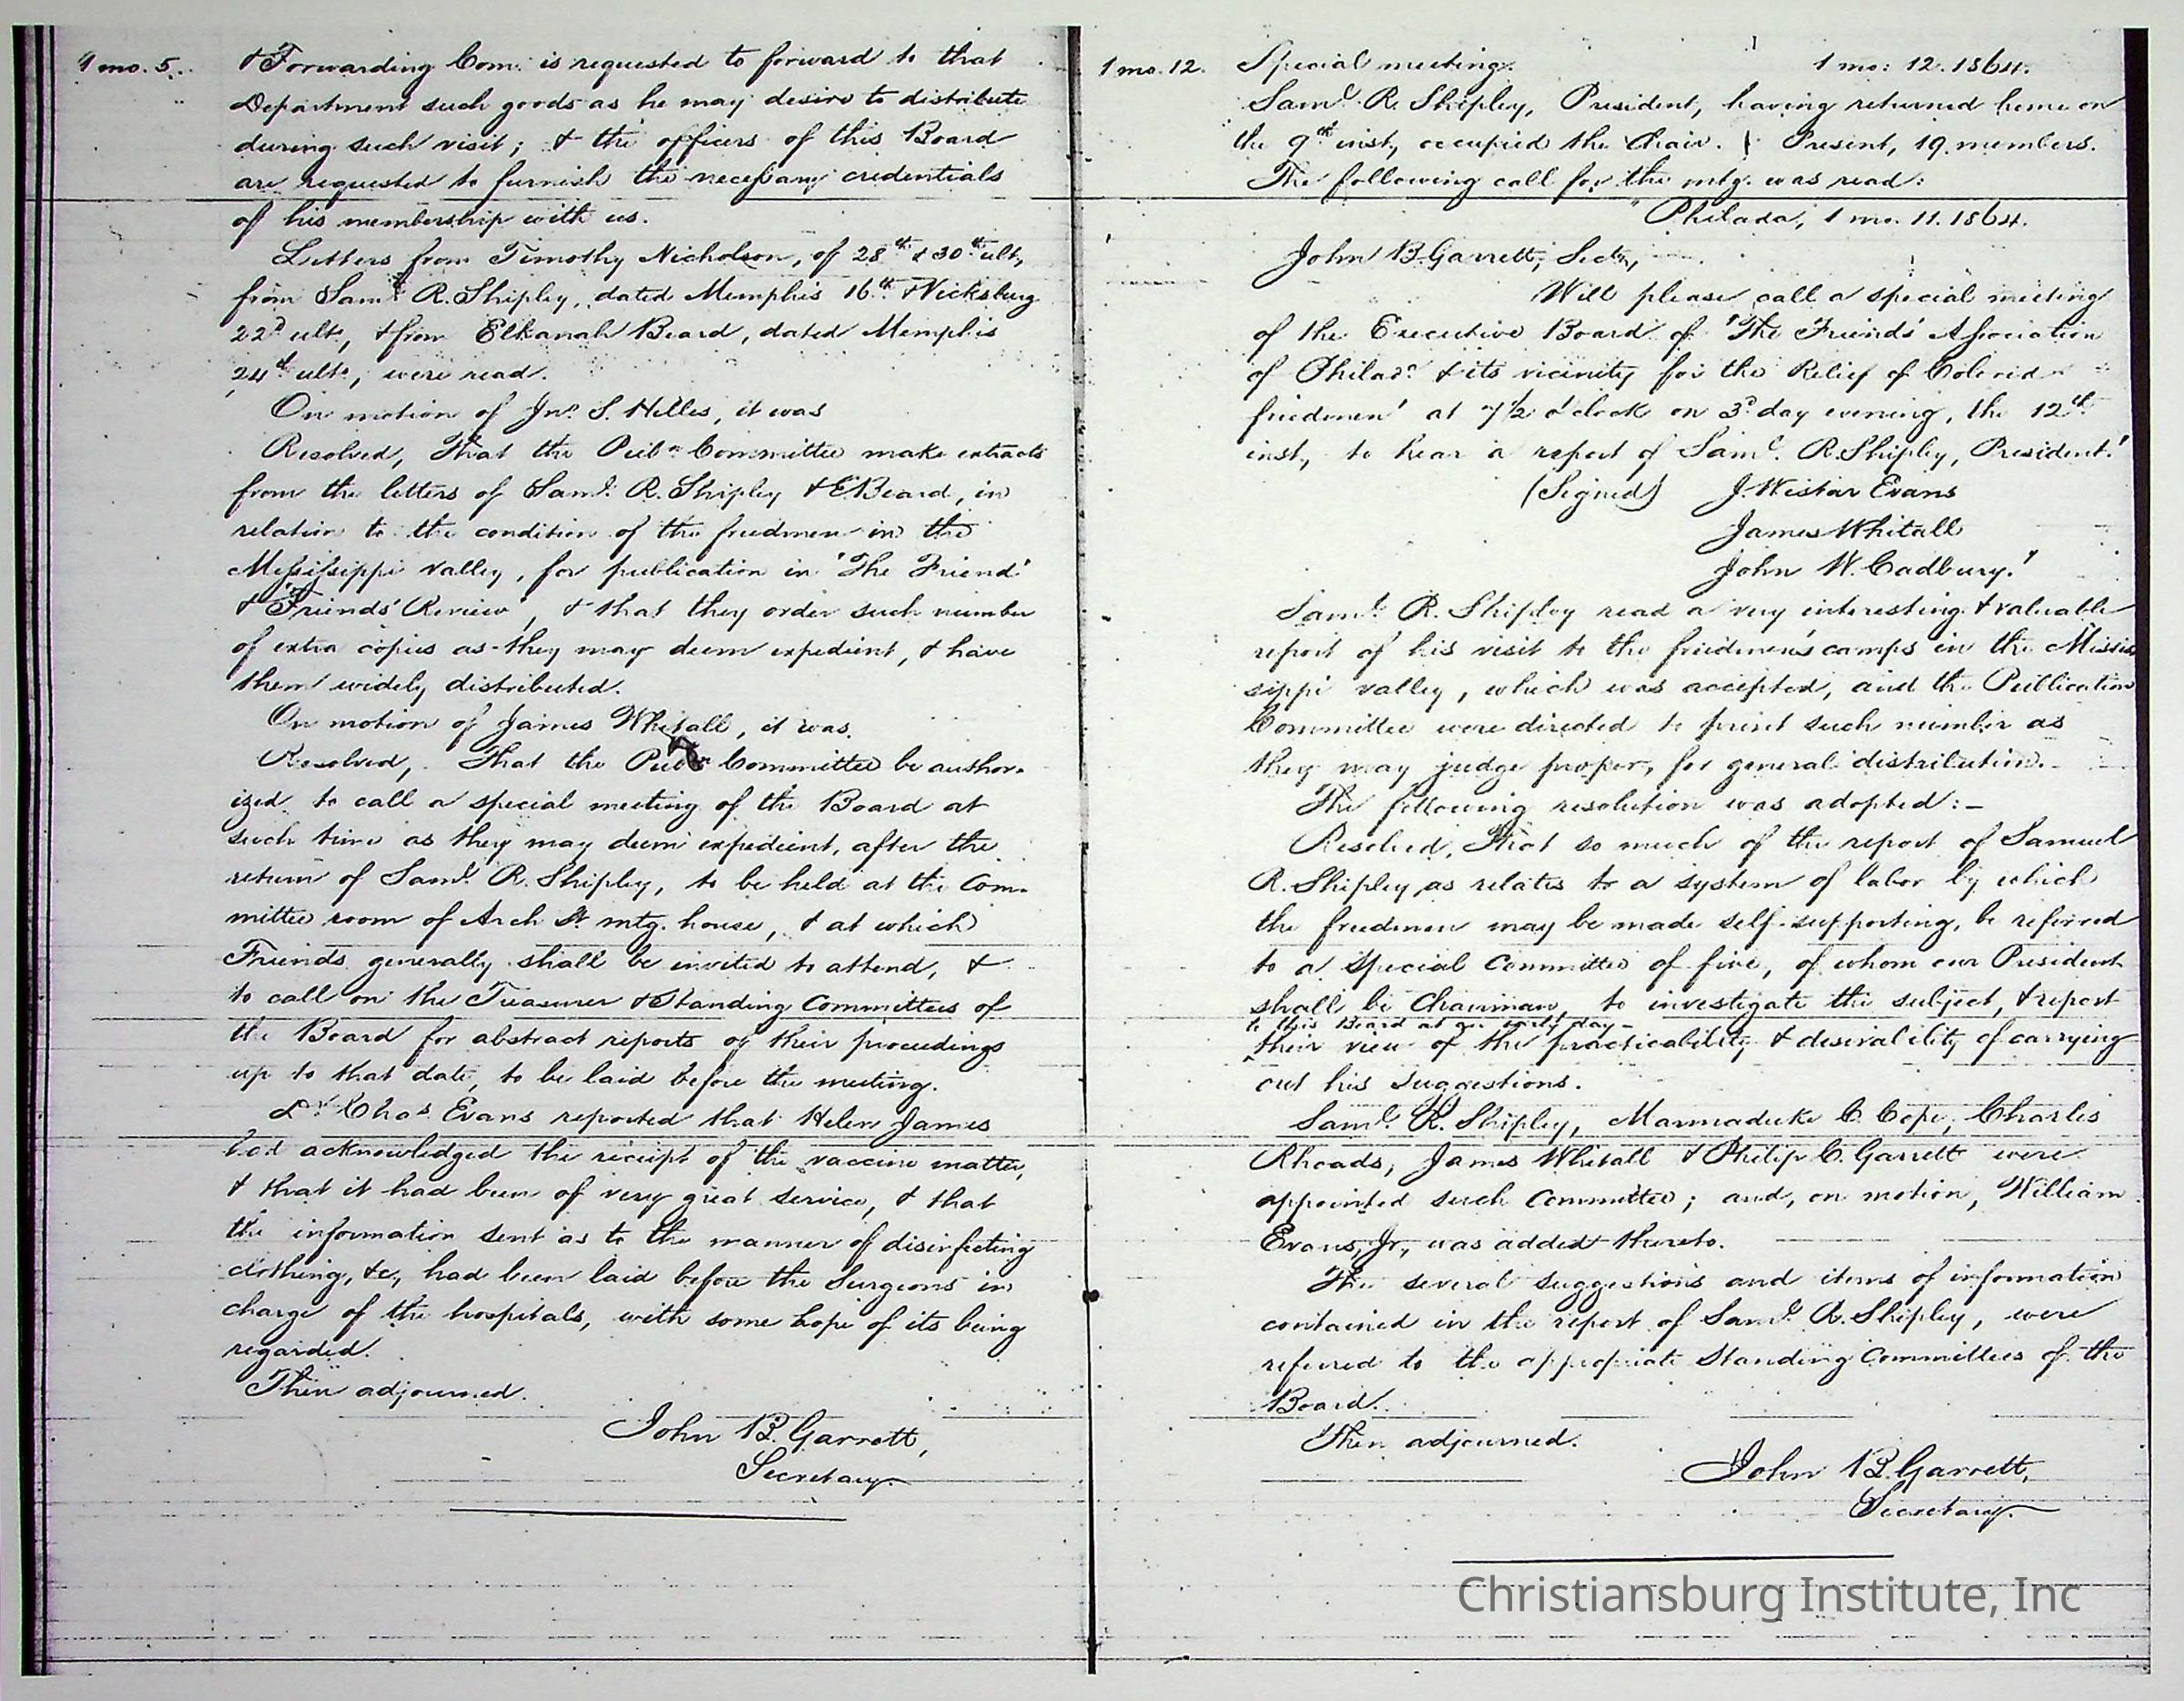 1 mo. 5.
& Forwarding Com. is requested to forward to that
Department such goods as he may desire to distribute
during such visit; & the officers of this Board
are requested to furnish the necessary credentials
of his membership with us.
Letters from Timothy Nicholson, of 28th & 30th ult,
from Saml. R. Shipley, dated Memphis 16th & Vicksburg
22d ulto, & from Elkanah Beard, dated Memphis
24th ulto, were read.
On motion of Jno. S. Hilles, it was
Resolved, That the Pubn. Committee make extracts
from the letters of Saml. R. Shipley & E Beard, in
relation to the condition of the freedmen in the
Mississippi valley, for publication in 'The Friend'
& 'Friends' Review', & that they order such number
of extra copies as they may deem expedient, & have
them widely distributed.
On motion of James Whitall, it was.
Resolved, That the Pubn Committee be author-
ized to call a special meeting of the Board at
such time as they may deem expedient, after the
return of Saml. R. Shipley, to be held at the Com-
mittee room of Arch St. mtg. house, & at which
Friends generally shall be invited to attend, &
to call on the Treasurer & Standing Committees of
the Board for abstract reports of their proceedings
up to that date, to be laid before the meeting.
Dr. Chas. Evans reported that Helen James
had acknowledged the receipt of the vaccine matter,
& that it had been of very great service, & that
the information sent as to the manner of disinfecting
clothing, &c, had been laid before the Surgeons in
charge of the hospitals, with some hope of its being
regarded.
Then adjourned.
John B. Garrett,
Secretary.
1 mo. 12.
Special meeting. 1 mo: 12. 1864.
Saml. R. Shipley, President, having returned home on
the 9th inst, occupied the Chair. Present, 19 members.
The following call for the mtg. was read:
"Philada, 1 mo. 11. 1864.
John B. Garrett, Secty,
Will please call a special meeting
of the Executive Board of 'The Friends' Association
of Philada. & its vicinity for the Relief of Colored
freedmen' at 7½ o'clock on 3d day evening, the 12th
inst, to hear a report of Saml. R. Shipley, President.'
(Signed) J. Wistar Evans
James Whitall
John W. Cadbury."
Saml. R. Shipley read a very interesting & valuable
report of his visit to the freedmen's camps in the Missis
sippi valley, which was accepted, and the Publication
Committee were directed to print such number as
they may judge proper, for general distribution.
The following resolution was adopted:—
Resolved, That so much of the report of Samuel
R. Shipley, as relates to a system of labor by which
the freedmen may be made self-supporting, be referred
to a special Committee of five, of whom our President
shall be Chairman, to investigate the subject, & report
to this Board at an early day—
their view of the practicability & desirability of carrying
out his suggestions.
Saml. R. Shipley, Marmaduke C. Cope, Charles
Rhoads, James Whitall & Philip C. Garrett were
appointed such Committee; and, on motion, William
Evans, Jr, was added thereto.
The several suggestions and items of information
contained in the report of Saml. R. Shipley, were
referred to the appropriate Standing Committees of the
Board.
Then adjourned.
John B. Garrett,
Secretary.
Christiansburg Institute, Inc